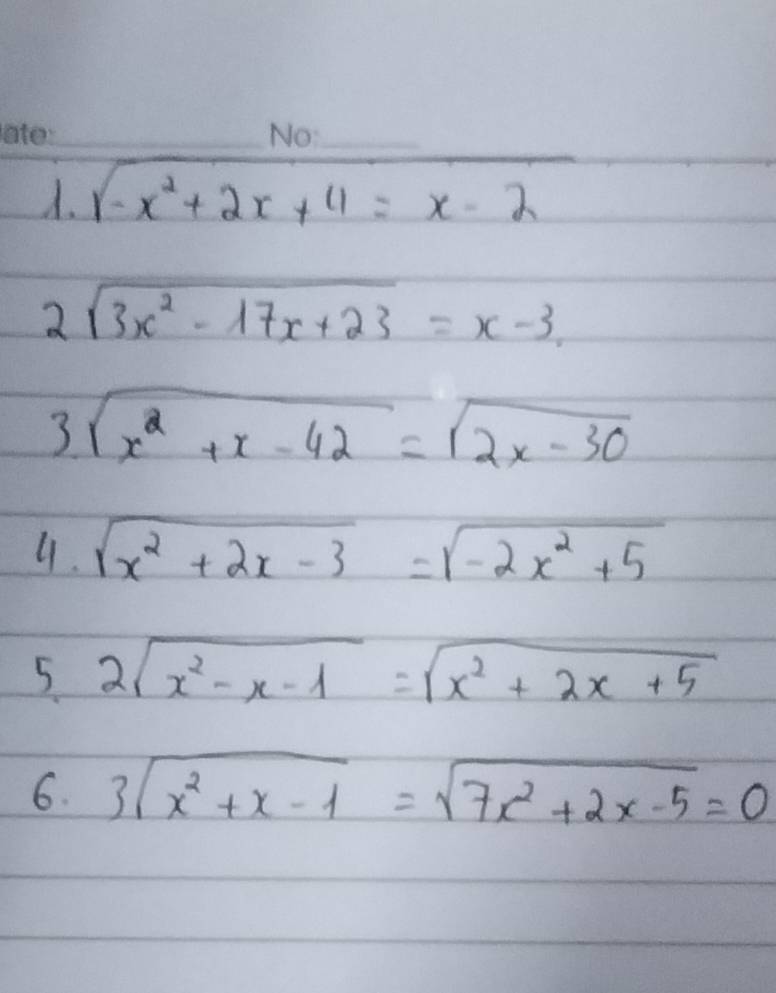 ate: No:
1. √(-x² + 2x + 4) = x - 2
2 √(3x² - 17x + 23) = x - 3.
3. √(x² + x - 42) = √(2x - 30)
4. √(x² + 2x - 3) = √(-2x² + 5)
5. 2√(x² - x - 1) = √(x² + 2x + 5)
6. 3√(x² + x - 1) = √(7x² + 2x - 5) = 0